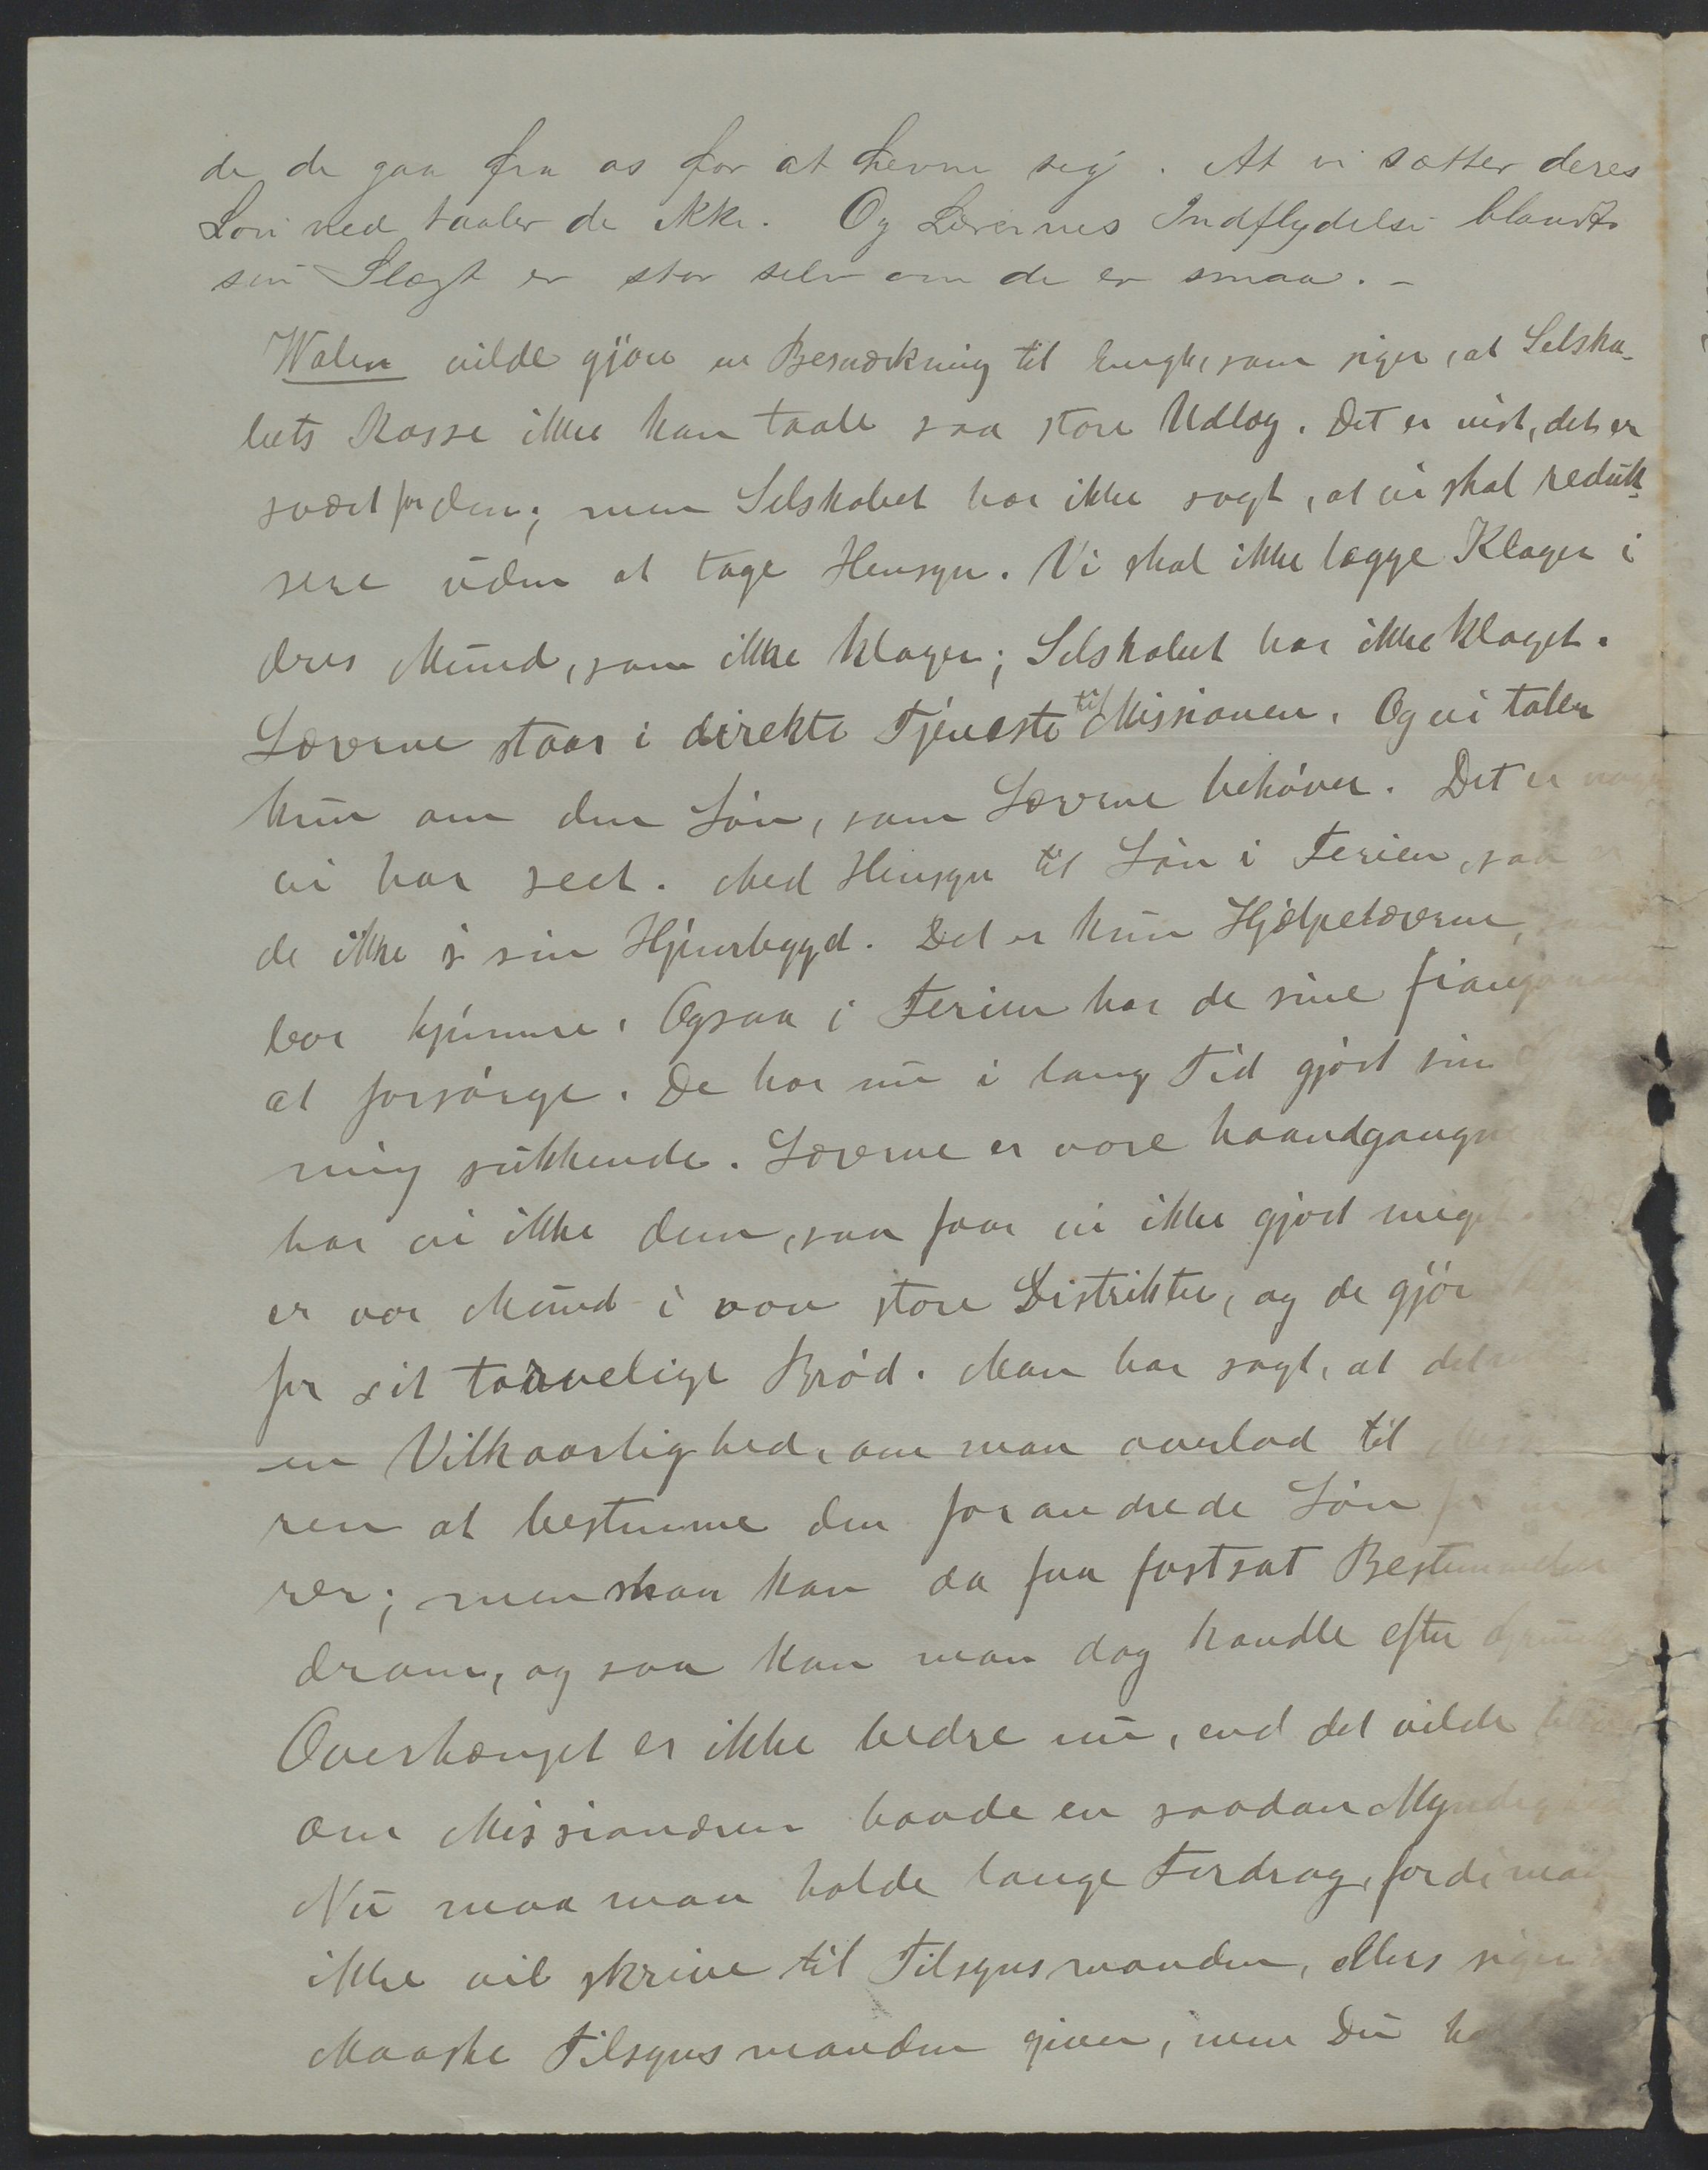 de de gaa fra os for at hevne sig. At vi sætter deres
Løn ned taaler de ikke. Og Lærernes Indflydelse blandt
sin Slægt er stor selv om de er smaa. -
Walen vilde gjøre en Bemærkning til Engh, som siger, at Selska-
bets Kasse ikke kan taale saa store Udlæg. Det er vist, det er
svært for dem; men Selskabet har ikke sagt, at vi skal reduk-
sere uden at tage Hensyn. Vi skal ikke lægge Klager i
deres Mund, som ikke klager; Selskabet har ikke klaget.
Lærerne staar i direkte Tjeneste til Missionen. Og vi taler
kun om den Løn, som Lærerne behøver. Det er
vi har seet. Med Hensyn til Løn i Ferien, saa
de ikke i sin Hjembygd. Det er kun Hjælpelærerne,
bor hjemme. Ogsaa i Ferien har de sine
at forsørge. De har nu i lang Tid gjort sin
ning sukkende. Lærerne er vore haandgangne
har vi ikke dem, saa faar vi ikke gjort meget
er vor Mund i vore store Distrikter, og de gjør
for sit tarvelige Brød. Man har sagt, at det
en Vilkaarlighed, om man overlod til
ren at bestemme den forandrede Løn
rer; men man kan da faa fastsat Bestemmelser
derom, og saa kan man dog handle efter
Overhænget er ikke bedre nu, end det vilde
om Missionæren havde en saadan Myndighed
Nu maa man holde lange Fordrag, fordi man
ikke vil skrive til Tilsynsmanden, ellers siger
Maaske Tilsynsmanden giver, men Du